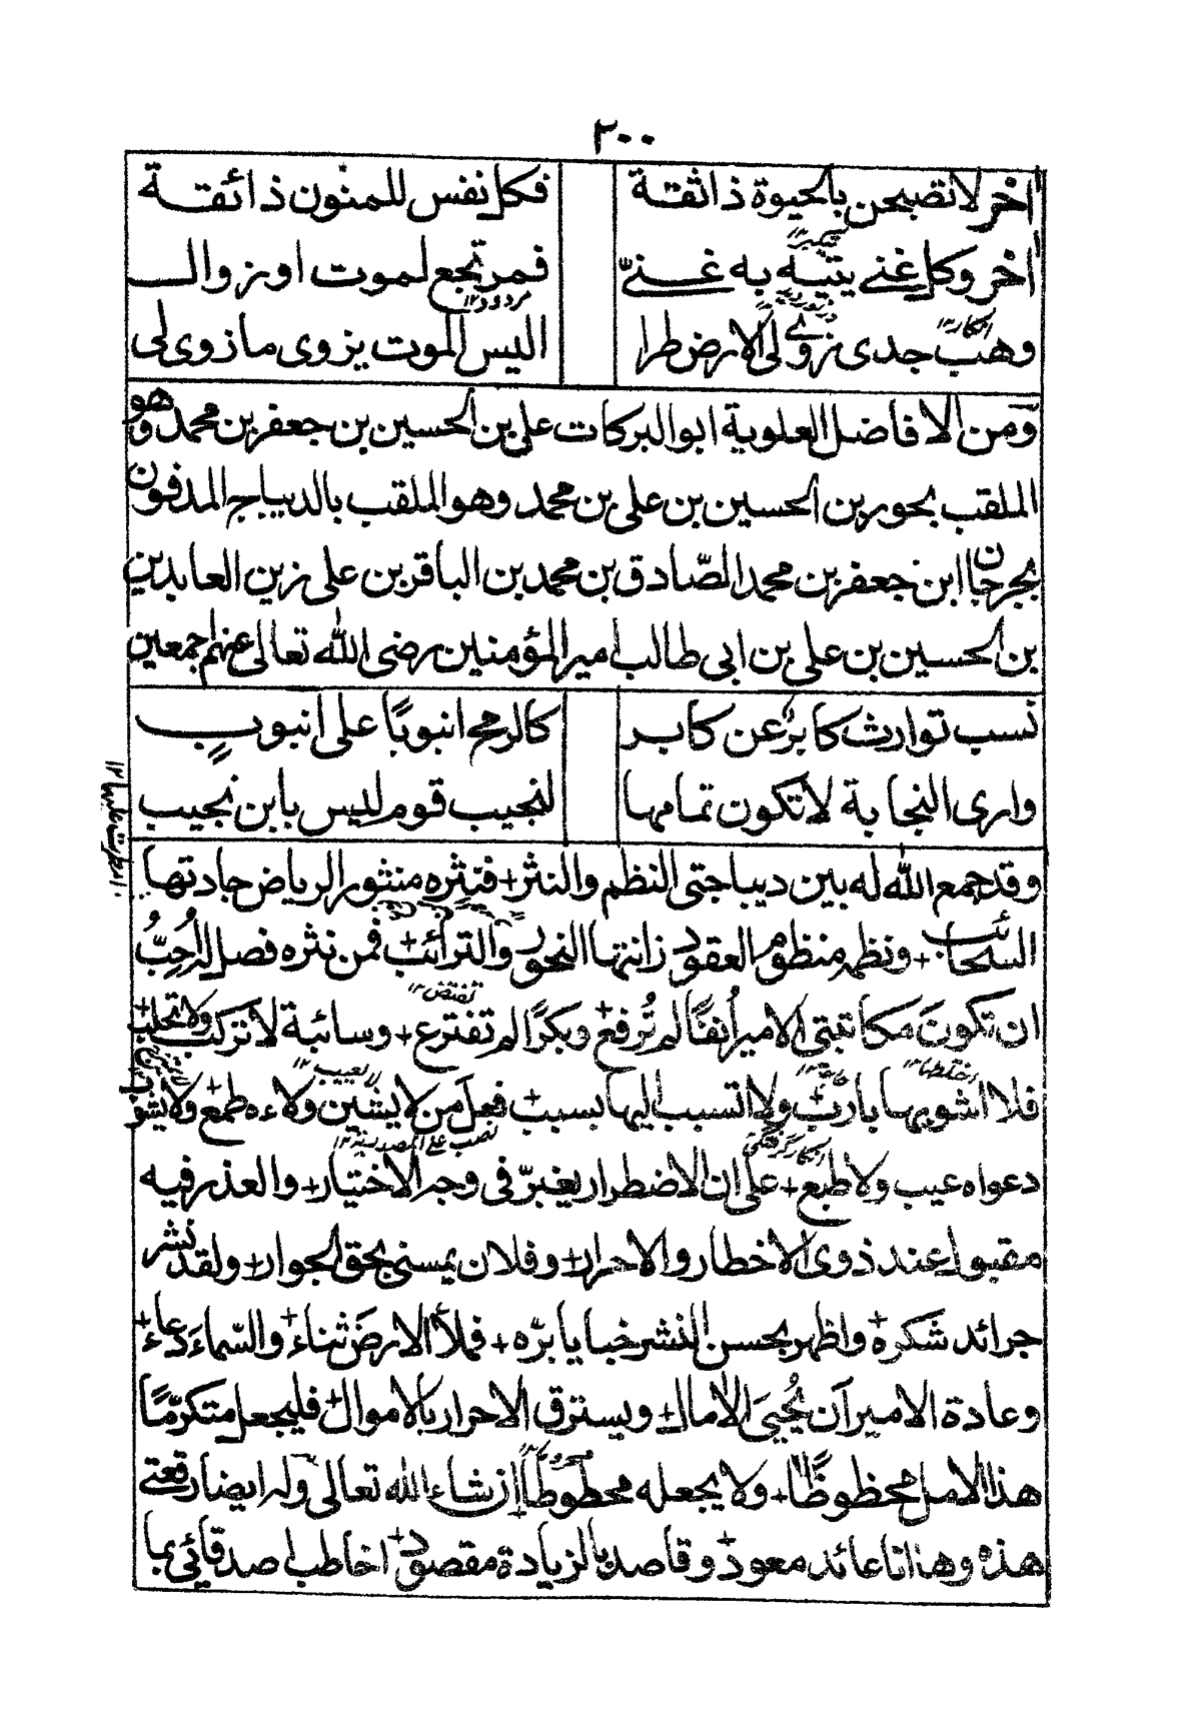 ٢٠٠
اخر لا تصبحن بالحيوة ذا ثقة فكل نفس للمنون ذائقة
اخر وكل غني يتيه به غنيّ فمرتجع لموت او زوال
وهب جدي زوى لي الارض طرا اليس الموت يزوى ما زوى لي
ومن الافاضل العلوية ابو البركات علي بن الحسين بن جعفر بن محمد وهو
الملقب بحور بن الحسين بن علي بن محمد وهو الملقب بالديباج المدفون
بجرجان ابن جعفر بن محمد الصّادق بن محمد بن الباقر بن علي زين العابدين
بن الحسين بن علي بن ابي طالب امير المؤمنين رضى الله تعالى عنهم اجمعين
نسب توارث كابرٌ عن كابر كالرمح انبوبًا على انبوبٍ
وارى النجابة لا تكون تمامها لنجيب قوم ليس بابن نجيب
وقد جمع الله له بين ديباجتي النظم والنثر+ فنثره منثور الرياض جادتها
السحائب+ ونظمه منظوم العقود زانتها النحور والترائب+ فمن نثره فصل له أُحِبُّ
ان تكونَ مكاتبتي الامير أُنفًا لم تُرفع+ وبكرًا لم تفترع+ وسائبة لا تركب ولا تحلب+
تفتض ١٢
فلا اشوبها بارب+ ولا اتسبب اليها بسبب+ فعل من لا يشين ولاءه طمع+ ولا يشوب
دعواه عيب ولا طبع+ على ان الاضطرار يغبرّ في وجه الاختيار+ والعذر فيه
مقبول عند ذوي الاخطار والاحرار+ وفلان يمسني بحق الجوار+ ولقد نشر
جرائد شكره+ واظهر بحسن النشر خبايا برّه+ فملأ الارضَ ثناء+ والسّماءَ دعاء+
وعادة الامير آن يُحيىَ الامال+ ويسترق الاحرار بالاموال+ فليجعل متكرّمًا
هذا الامل محظوظًا+ ولا يجعله محطوطًا+ ان شاء الله تعالى وله ايضا رقعتي
هذه وها انا عائد معود+ وقاصد بالزيادة مقصود+ اخاطب اصدقائي بما